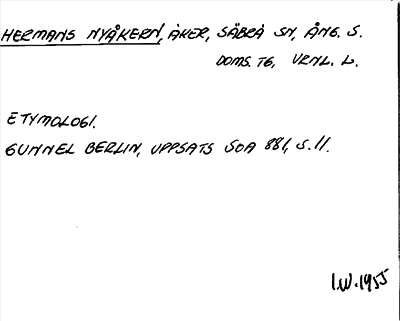 HERMANS NYÅKERN, ÅKER, SÄBRÅ SN, ÅNG. S.
DOMS. TG, VRNL. L.
ETYMOLOGI.
GUNNEL BERLIN, UPPSATS SOA 881, S. 11.
I.W. 1955